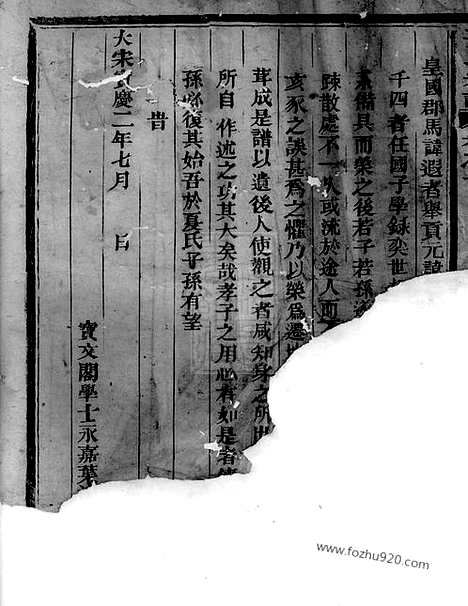 皇國郡馬諱遐者舉貢元諱
千四者任國子學録奕世
備具而榮之後若子若孫
踈散處不一或流於途人而
亥豕之誤甚為之懼乃以榮為遷
葺成是譜以遺後人使觀之者咸知身之所出
所自作述之功其大矣哉孝子之用心有如是者
孫必復其始吾於夏氏子孫有望
昔
大宋寳慶二年七月 日
寶文閣學士永嘉葉
www.fozhu920.com